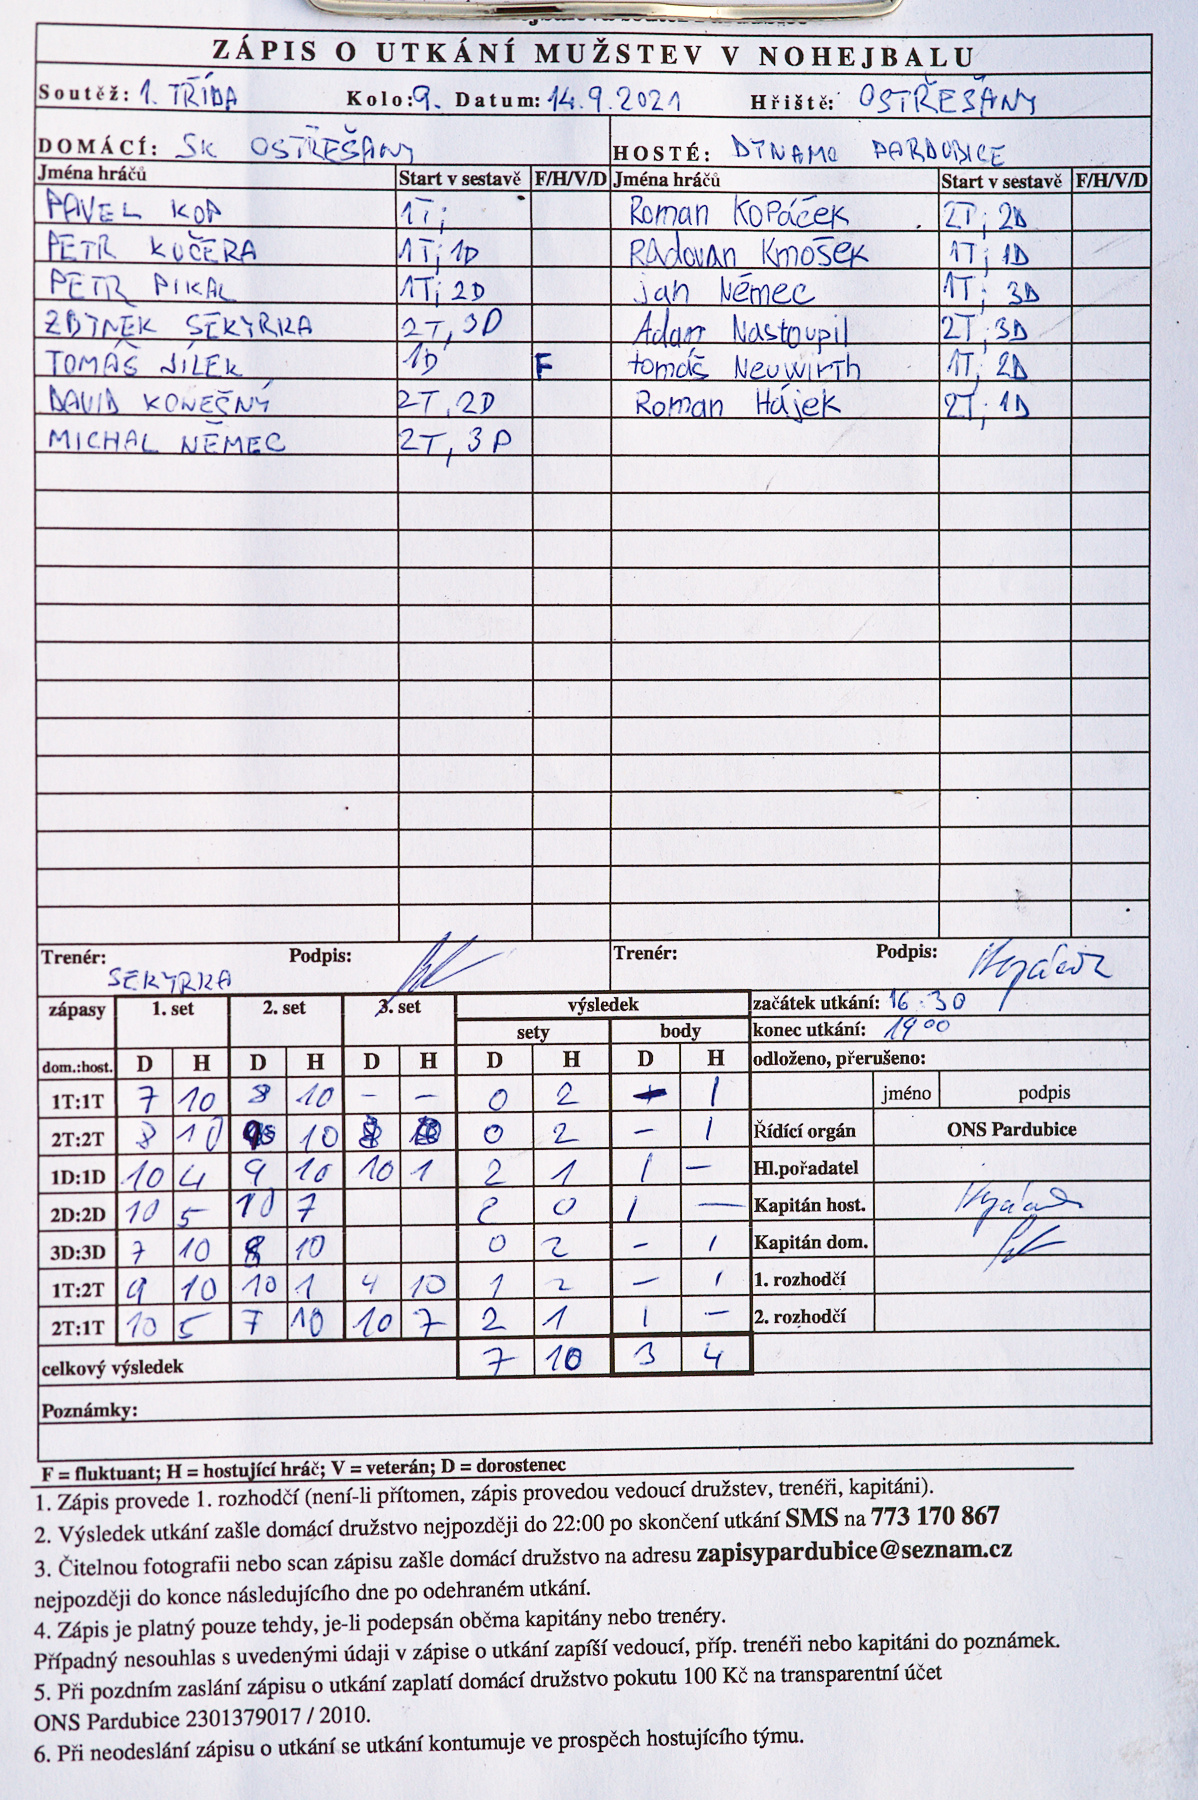 ZÁPIS O UTKÁNÍ MUŽSTEV V NOHEJBALU
Soutěž: 1. TŘÍDA Kolo: 9. Datum: 14.9.2021 Hřiště: OSTŘEŠANY
DOMÁCÍ: SK OSTŘEŠANY HOSTÉ: DYNAMO PARDUBICE
Jména hráčů Start v sestavě F/H/V/D Jména hráčů Start v sestavě F/H/V/D
PAVEL KOP 1T; Roman Kopáček 2T; 2D
PETR KUČERA 1T; 1D Radovan Kmošek 1T; 1D
PETR PIKAL 1T; 2D jan Němec 1T; 3D
ZBYNĚK SEKYRKA 2T, 3D Adam Nastoupil 2T; 3D
TOMÁŠ JÍLEK 1D F tomáš Neuwirth 1T; 2D
DAVID KONEČNÝ 2T, 2D Roman Hájek 2T; 1D
MICHAL NĚMEC 2T, 3D
Trenér: SEKYRKA Podpis: Trenér: Podpis:
zápasy 1. set 2. set 3. set výsledek začátek utkání: 16:30
sety body konec utkání: 19 00
dom.:host. D H D H D H D H D H odloženo, přerušeno:
1T:1T 7 10 8 10 – – 0 2 – 1 jméno podpis
2T:2T 8 10 10 0 2 – 1 Řídící orgán ONS Pardubice
1D:1D 10 4 9 10 10 1 2 1 1 – Hl.pořadatel
2D:2D 10 5 10 7 2 0 1 – Kapitán host.
3D:3D 7 10 8 10 0 2 – 1 Kapitán dom.
1T:2T 9 10 10 1 4 10 1 2 – 1 1. rozhodčí
2T:1T 10 5 7 10 10 7 2 1 1 – 2. rozhodčí
celkový výsledek 7 10 3 4
Poznámky:
F = fluktuant; H = hostující hráč; V = veterán; D = dorostenec
1. Zápis provede 1. rozhodčí (není-li přítomen, zápis provedou vedoucí družstev, trenéři, kapitáni).
2. Výsledek utkání zašle domácí družstvo nejpozději do 22:00 po skončení utkání SMS na 773 170 867
3. Čitelnou fotografii nebo scan zápisu zašle domácí družstvo na adresu zapisypardubice@seznam.cz
nejpozději do konce následujícího dne po odehraném utkání.
4. Zápis je platný pouze tehdy, je-li podepsán oběma kapitány nebo trenéry.
Případný nesouhlas s uvedenými údaji v zápise o utkání zapíší vedoucí, příp. trenéři nebo kapitáni do poznámek.
5. Při pozdním zaslání zápisu o utkání zaplatí domácí družstvo pokutu 100 Kč na transparentní účet
ONS Pardubice 2301379017 / 2010.
6. Při neodeslání zápisu o utkání se utkání kontumuje ve prospěch hostujícího týmu.